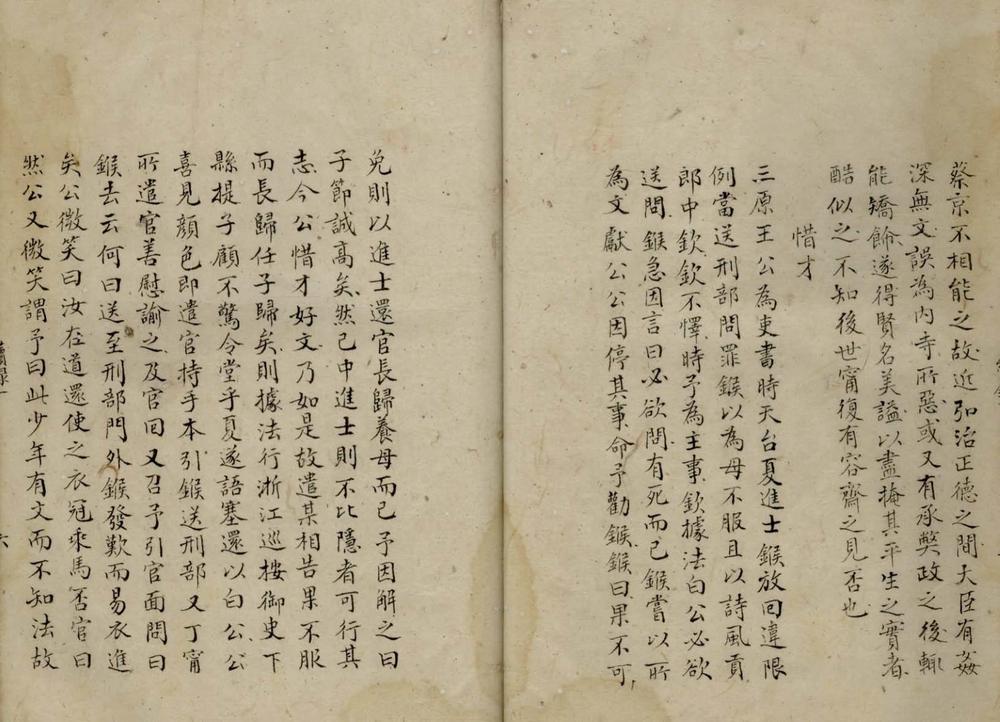 蔡京不相能之故近弘治正德之間大臣有姦
深無文誤為內寺所惡或又有承獘政之後輒
能矯餙遂得賢名美謚以盡掩其平生之實者
酷似之不知後世甯復有容齋之見否也
惜才
三原王公為吏書時天台夏進士鍭放回違限
例當送刑部問罪鍭以為母不服且以詩風貢
郎中欽欽不懌時予為主事欽據法白公必欲
送問鍭急因言曰必欲問有死而已鍭嘗以所
為文獻公公因停其事命予勸鍭鍭曰果不可
免則以進士還官長歸養母而已予因解之曰
子節誠高矣然已中進士則不比隱者可行其
志今公惜才好文乃如是故遣某相告果不服
而長歸任子歸矣則據法行浙江巡按御史下
縣提子顧不驚令堂乎夏遂語塞還以白公公
喜見顏色即遣官持手本引鍭送刑部又丁甯
所遣官善慰諭之及官回又召予引官面問曰
鍭去云何曰送至刑部門外鍭發歎而易衣進
矣公微笑曰汝在道還使之衣冠乘馬否官曰
然公又微笑謂予曰此少年有文而不知法故
六